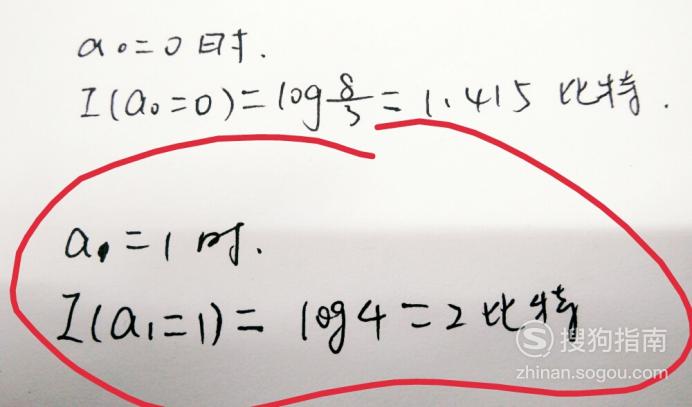 a₀=0时.
I(a₀=0)=log 8/3=1.415 比特.
a₁=1时.
I(a₁=1)=log4=2比特
搜狗指南
zhinan.sogou.com